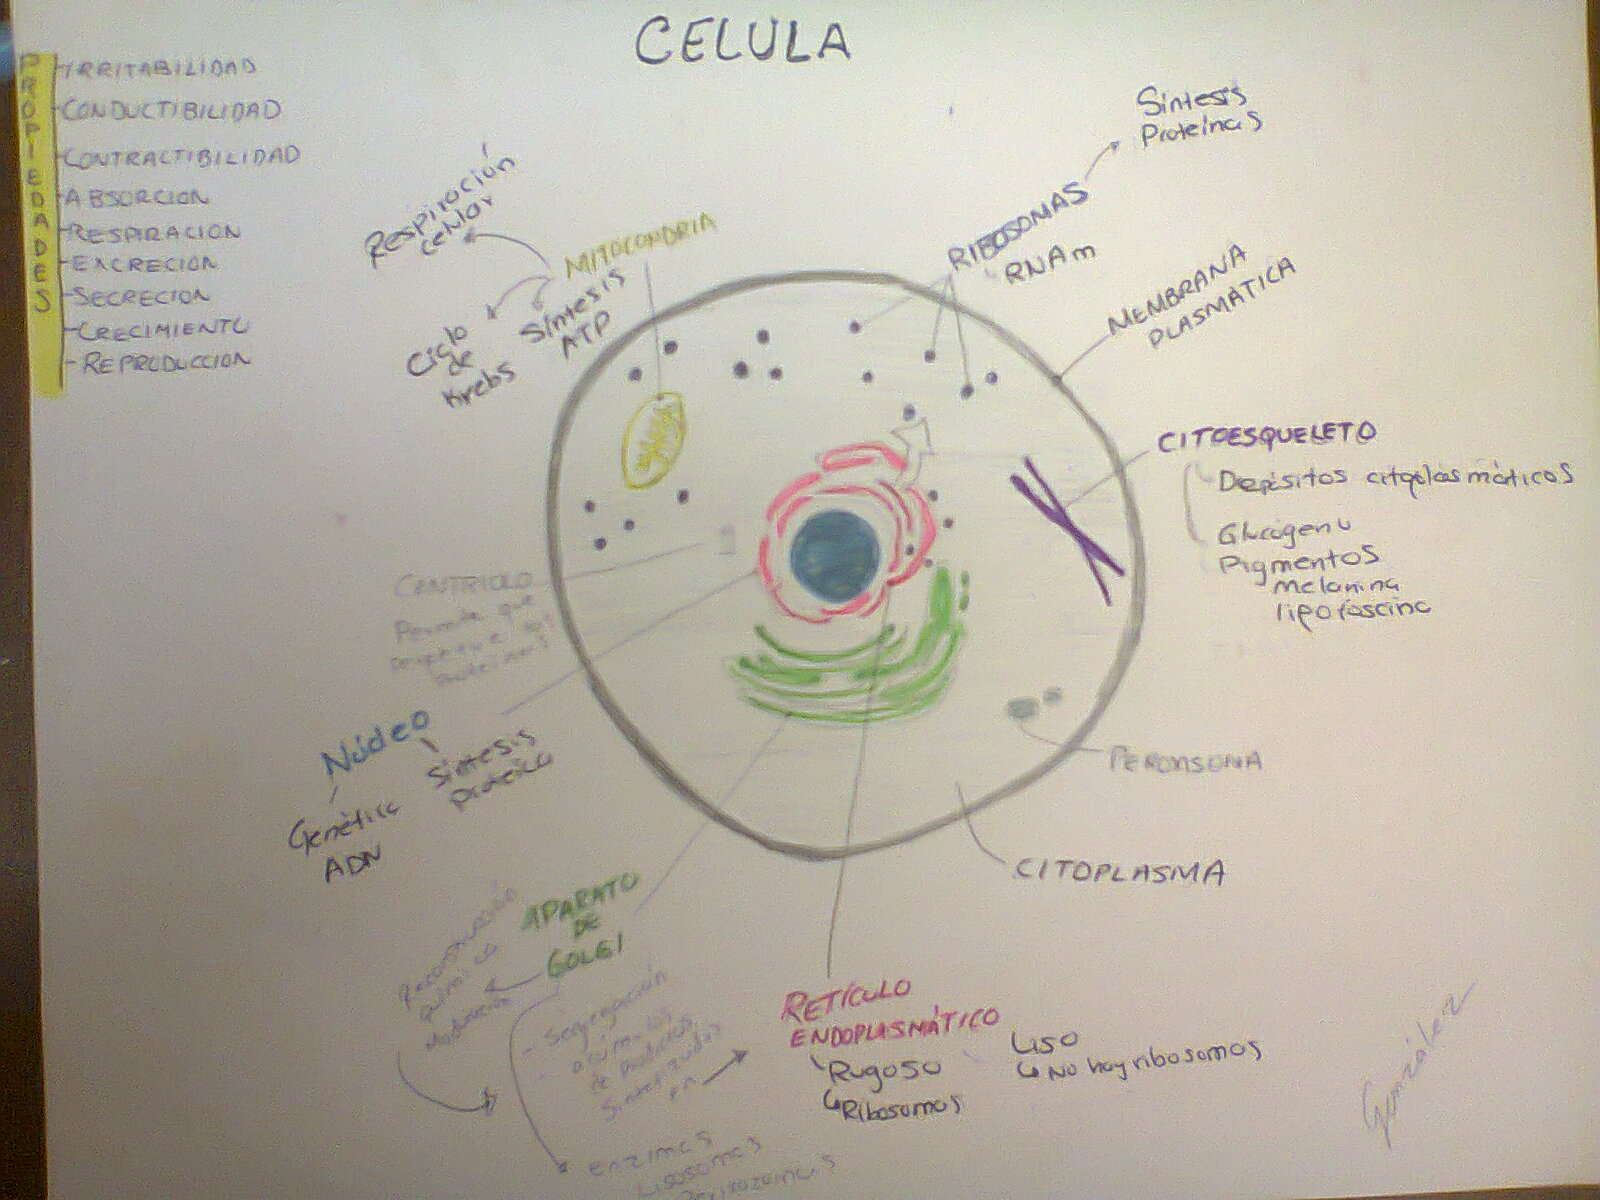 CELULA
PROPIEDADES
IRRITABILIDAD
CONDUCTIBILIDAD
CONTRACTIBILIDAD
ABSORCION
RESPIRACION
EXCRECION
SECRECION
CRECIMIENTO
REPRODUCCION
Síntesis
Proteínas
RIBOSOMAS
RNAm
MEMBRANA
PLASMÁTICA
Respiración
celular
MITOCONDRIA
Ciclo
de
Krebs
Síntesis
ATP
CITOESQUELETO
Depósitos citoplasmáticos
Glucógeno
Pigmentos
melanina
lipofuscina
CENTRIOLO
Permite que
Proteinas
Núcleo
Síntesis
proteica
Genética
ADN
PEROXISOMA
CITOPLASMA
APARATO
DE
GOLGI
química
- Segregación
de Productos
Sintetizados
en
RETÍCULO
ENDOPLASMÁTICO
Rugoso
Ribosomas
Liso
No hay ribosomas
enzimas
Lisosomas
González